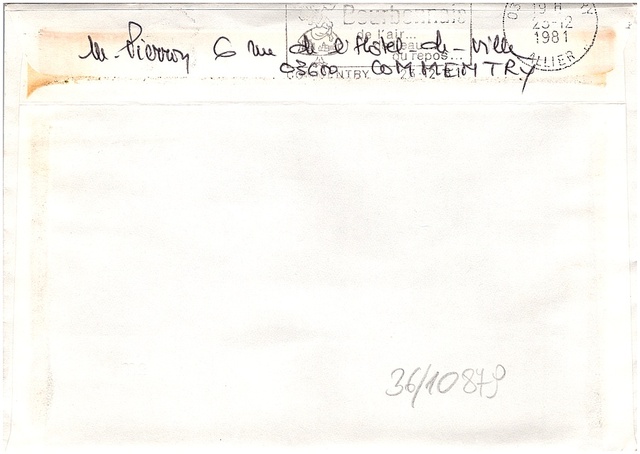 Bourbonnais
de l'air...
du repos...
03
19 H
23-12
1981
ALLIER
M. Pierron 6 rue de l'Hôtel-de-Ville
03600 COMMENTRY
36/10879